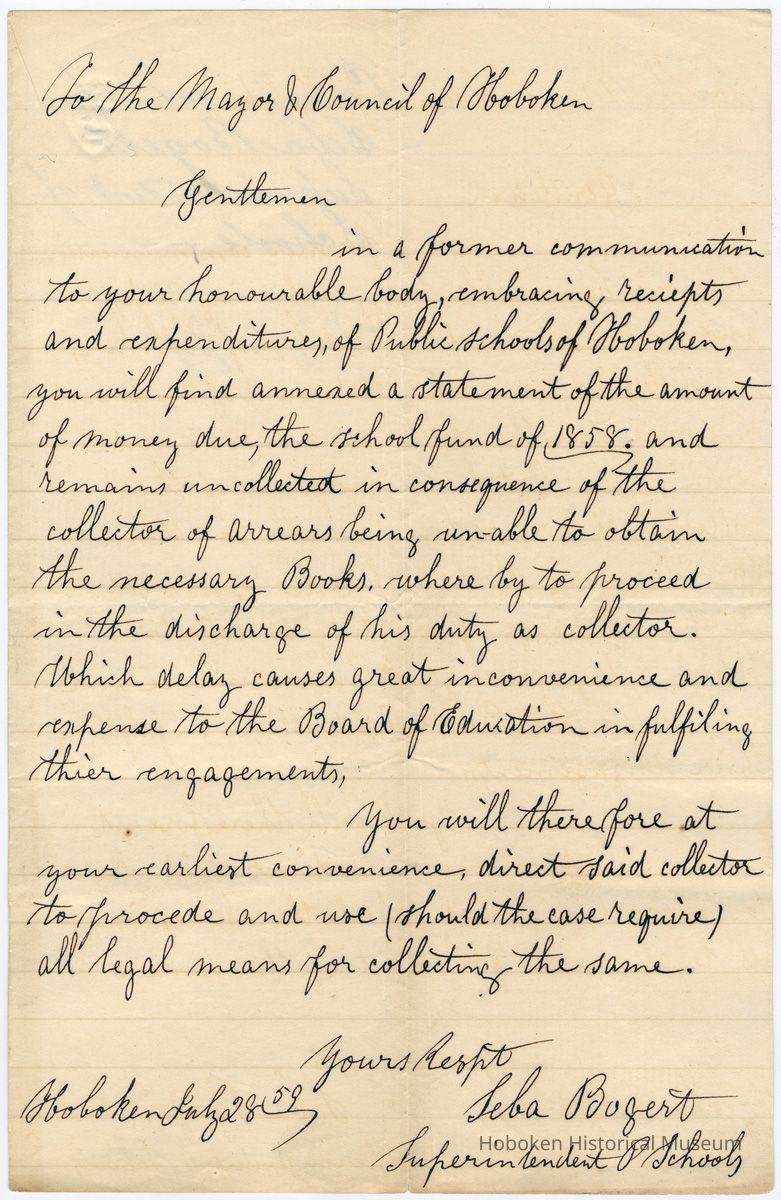 To the Mayor & Council of Hoboken
Gentlemen
in a former communication
to your honourable body, embracing, reciepts
and expenditures, of Public schools of Hoboken,
you will find annexed a statement of the amount
of money due, the school fund of, 1858. and
remains uncollected in consequence of the
collector of arrears being un-able to obtain
the necessary Books. where by to proceed
in the discharge of his duty as collector.
Which delay causes great inconvenience and
expense to the Board of Education in fulfiling
thier engagements,
You will there fore at
your earliest convenience, direct said collector
to procede and use (should the case require)
all legal means for collecting the same.
Yours Respt
Hoboken July 28 59
Seba Bogert
Hoboken Historical Museum
Superintendent P Schools